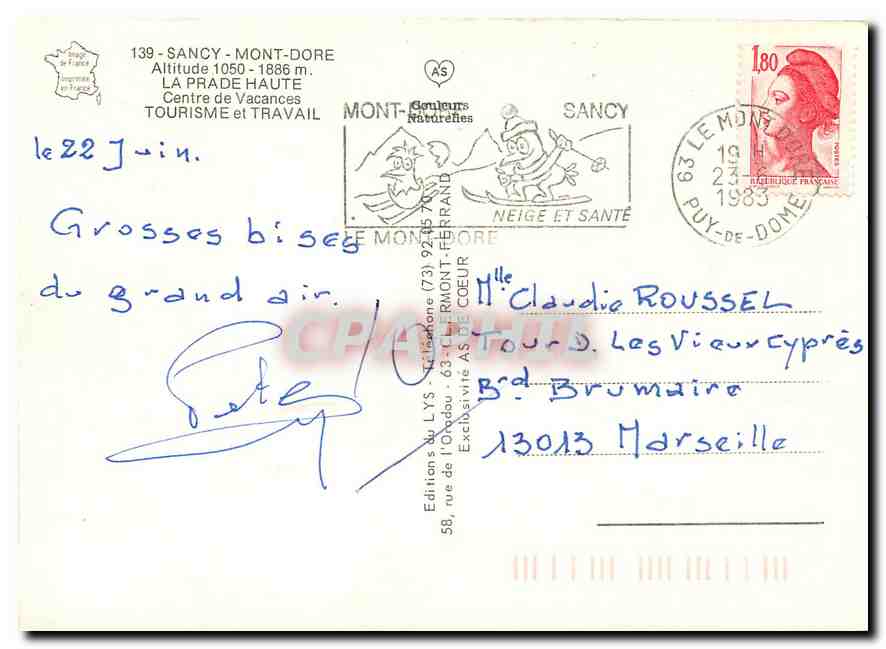 Image
de France
Imprimée
en France
139 - SANCY - MONT-DORE
Altitude 1050 - 1886 m.
LA PRADE HAUTE
Centre de Vacances
TOURISME et TRAVAIL
AS
Couleurs
Naturelles
MONT- SANCY
NEIGE ET SANTÉ
LE MONT-DORE
63 LE MONT DORE
19 H
23-
1983
PUY-DE-DOME
1,80
POSTES
RÉPUBLIQUE FRANÇAISE
le 22 Juin.
Grosses bises
du grand air.
Mlle Claudie ROUSSEL
Tour D. Les Vieux Cyprès
Brd Brumaire
13013 Marseille
Editions du LYS - Téléphone (73) 92 05 70
58, rue de l'Oradou - 63 - CLERMONT-FERRAND
Exclusivité AS DE COEUR
CPAPHIL